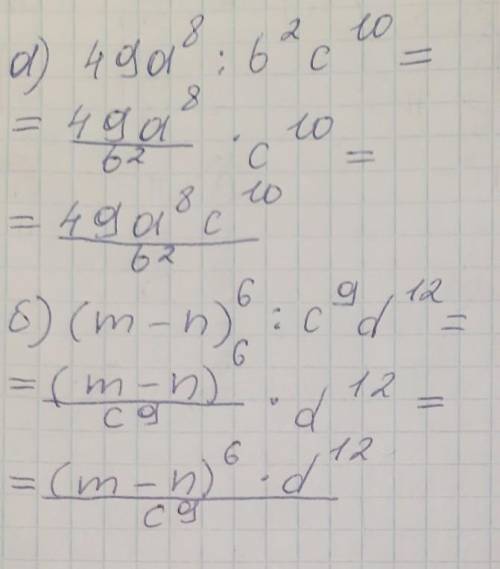 а) 49a⁸ : b²c¹⁰ =
= 49a⁸/b² · c¹⁰ =
= 49a⁸c¹⁰/b²
б) (m – n)⁶ : c⁹d¹² =
= (m – n)⁶/c⁹ · d¹² =
= (m – n)⁶ · d¹²/c⁹